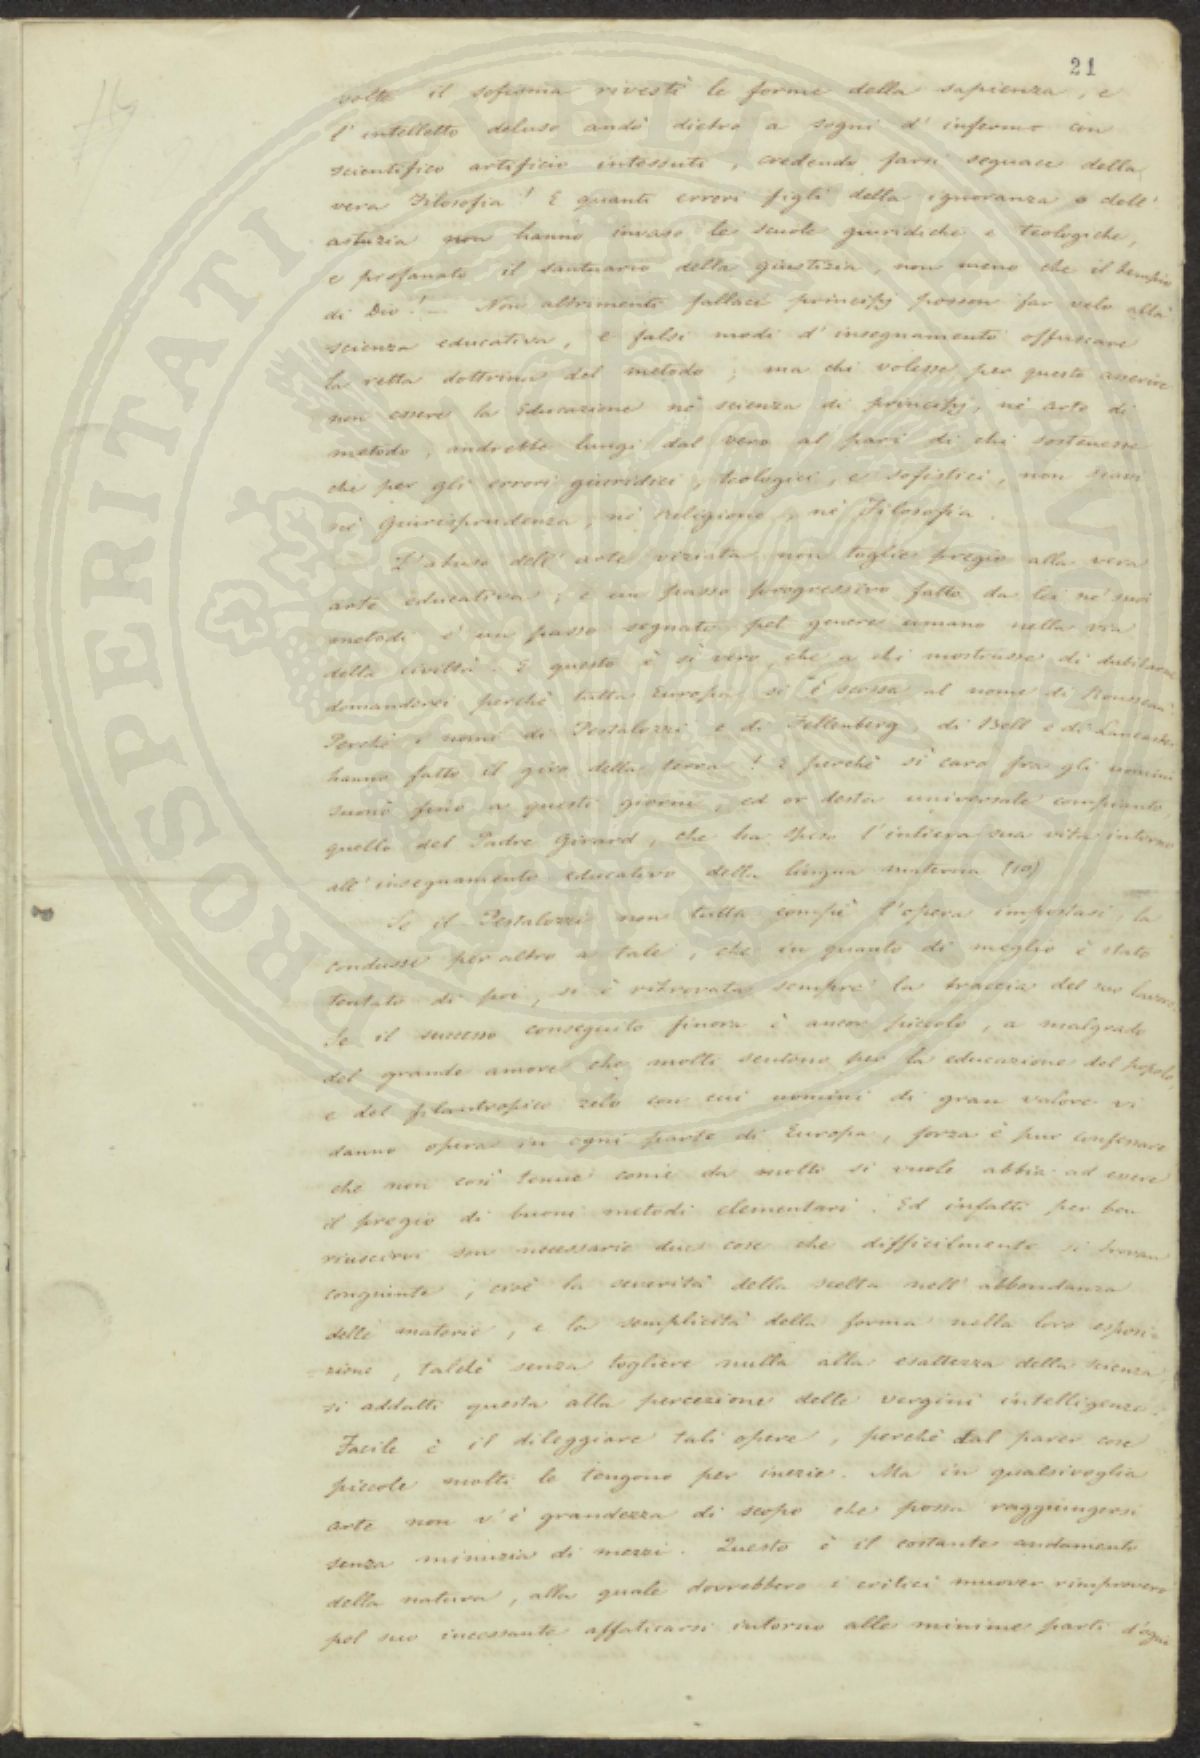 21
volte il sofisma rivestì le forme della sapienza, e
l'intelletto deluso andò dietro a sogni d'infermo con
scientifico artificio intessuti, credendo farsi seguace della
vera Filosofia! E quanti errori figli della ignoranza o dell'
astuzia non hanno invaso le scuole giuridiche e teologiche,
e profanato il santuario della giustizia, non meno che il tempio
di Dio! — Non altrimenti fallaci principj posson far velo alla
scienza educativa, e falsi modi d'insegnamento offuscare
la retta dottrina del metodo; ma chi volesse per questo asserire
non essere la Educazione nè scienza di principj, nè arte di
metodo, andrebbe lungi dal vero al pari di chi sostenesse
che per gli errori giuridici, teologici, e sofistici, non siavi
nè Giurisprudenza, nè Religione, nè Filosofia.
L'abuso dell'arte viziata non toglie pregio alla vera
arte educativa; e un passo progressivo fatto da lei ne' suoi
metodi è un passo segnato pel genere umano nella via
della civiltà. E questo è sì vero, che a chi mostrasse di dubitarne
domanderei perchè tutta Europa si è scossa al nome di Rousseau?
Perchè i nomi di Pestalozzi e di Fellenberg, di Bell e di Lancaster
hanno fatto il giro della terra? E perchè sì caro fra gli uomini
suonò fino a questi giorni, ed or desta universale compianto,
quello del Padre Girard, che ha speso l'intiera sua vita intorno
all'insegnamento educativo della lingua materna (10)
Se il Pestalozzi non tutta compì l'opera impostasi, la
condusse per altro a tale, che in quanto di meglio è stato
tentato di poi, si è ritrovata sempre la traccia del suo lavoro.
Se il successo conseguito finora è ancor piccolo, a malgrado
del grande amore che molti sentono per la educazione del popolo,
e del filantropico zelo con cui uomini di gran valore vi
danno opera in ogni parte di Europa, forza è pur confessare
che non così tenue come da molti si vuole abbia ad essere
il pregio di buoni metodi elementari. Ed infatti per ben
riuscirvi son necessarie due cose che difficilmente si trovan
congiunte, cioè la severità della scelta nell'abbondanza
delle materie, e la semplicità della forma nella loro esposi=
=zione, talchè senza togliere nulla alla esattezza della scienza,
si addatti questa alla percezione delle vergini intelligenze.
Facile è il dileggiare tali opere, perchè dal parer cose
piccole molti le tengono per inezie. Ma in qualsivoglia
arte non v'è grandezza di scopo che possa raggiungersi
senza minuzia di mezzi. Questo è il costante andamento
della natura, alla quale dovrebbero i critici muover rimprovero
pel suo incessante affaticarsi intorno alle minime parti d'ogni
PROSPERITATI